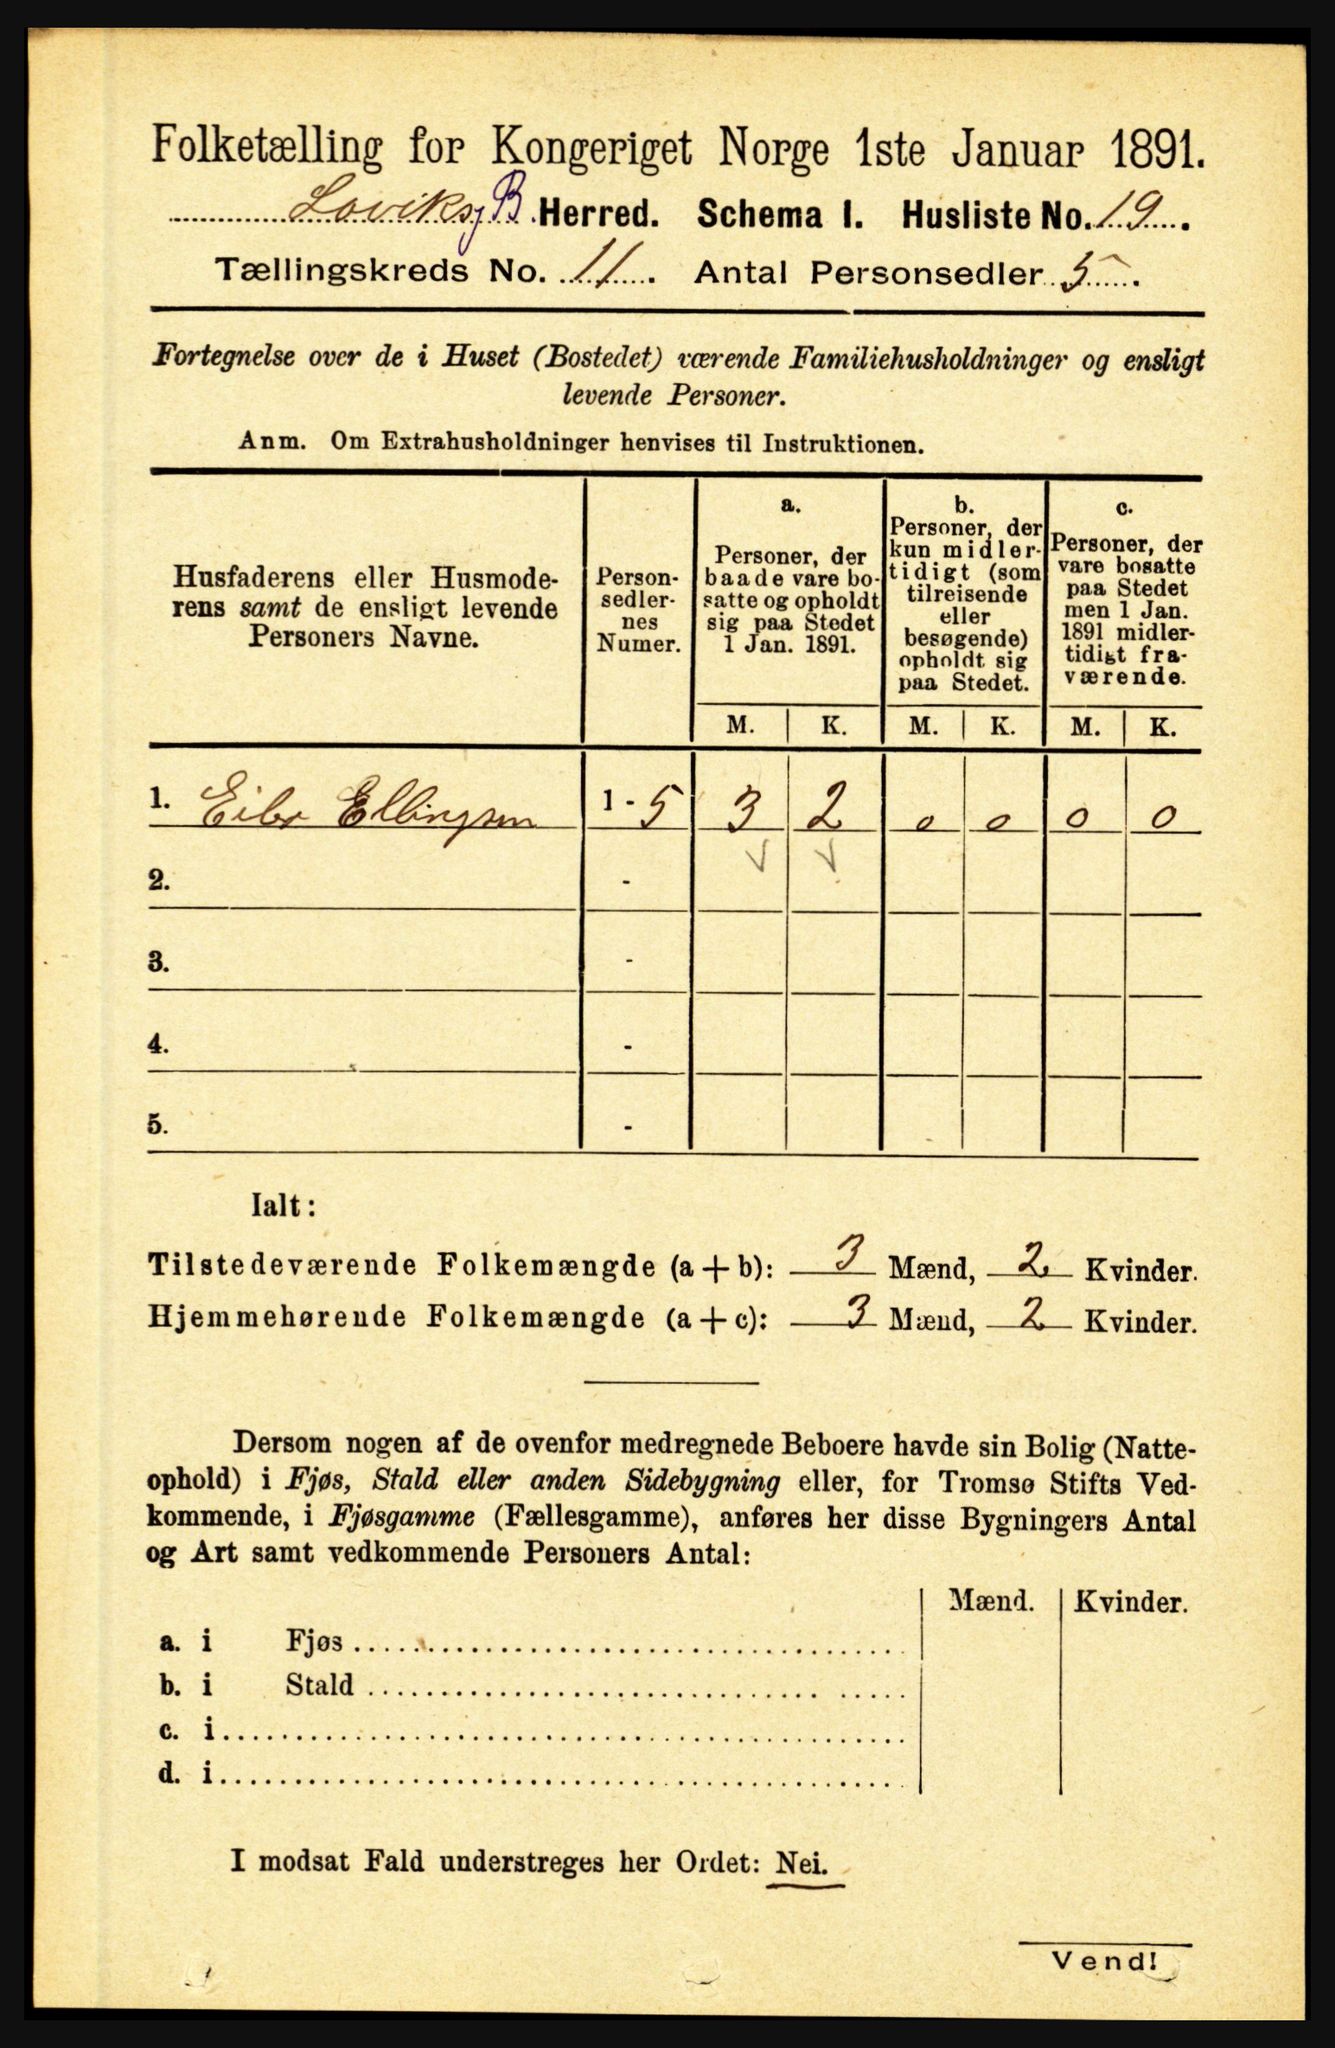 Folketælling for Kongeriget Norge 1ste Januar 1891.
Loviks B. Herred. Schema I. Husliste No. 19.
Tællingskreds No. 11. Antal Personsedler 5.
Fortegnelse over de i Huset (Bostedet) værende Familiehusholdninger og ensligt
levende Personer.
Anm. Om Extrahusholdninger henvises til Instruktionen.
Husfaderens eller Husmode-
rens samt de ensligt levende
Personers Navne.
Person-
sedler-
nes
Numer.
a.
Personer, der
baade vare bo-
satte og opholdt
sig paa Stedet
1 Jan. 1891.
b.
Personer, der
kun midler-
tidigt (som
tilreisende
eller
besøgende)
opholdt sig
paa Stedet.
c.
Personer, der
vare bosatte
paa Stedet
men 1 Jan.
1891 midler-
tidigt fra-
værende.
M. K. M. K. M. K.
1. Ellingsen 1 - 5 3 2 0 0 0 0
2. -
3. -
4. -
5. -
Ialt:
Tilstedeværende Folkemængde (a + b): 3 Mænd, 2 Kvinder.
Hjemmehørende Folkemængde (a + c): 3 Mænd, 2 Kvinder.
Dersom nogen af de ovenfor medregnede Beboere havde sin Bolig (Natte-
ophold) i Fjøs, Stald eller anden Sidebygning eller, for Tromsø Stifts Ved-
kommende, i Fjøsgamme (Fællesgamme), anføres her disse Bygningers Antal
og Art samt vedkommende Personers Antal:
Mænd. Kvinder.
a. i Fjøs
b. i Stald
c. i
d. i
I modsat Fald understreges her Ordet: Nei.
Vend!